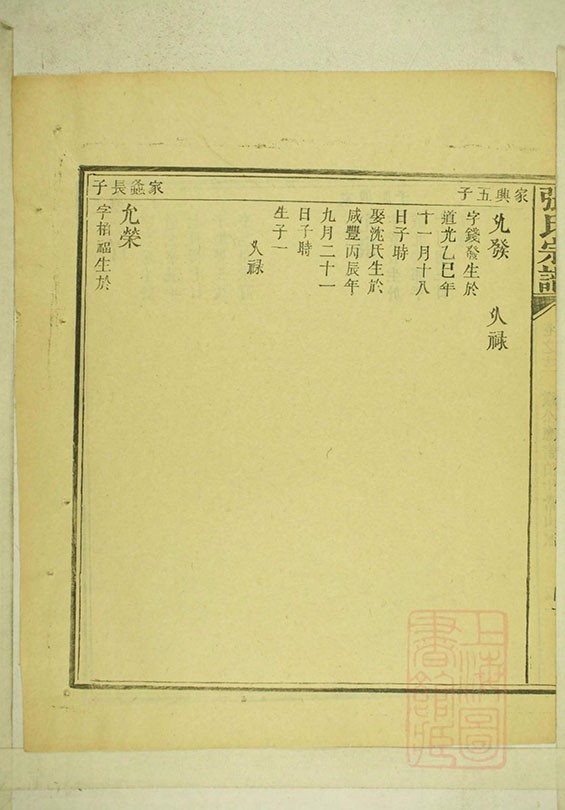 張氏宗譜
家興五子
允發 久祿
字錢發生於
道光乙巳年
十一月十八
日子時
娶沈氏生於
咸豐丙辰年
九月二十一
日子時
生子一
久祿
家蠡長子
允榮
字栢福生於
上海圖書館藏